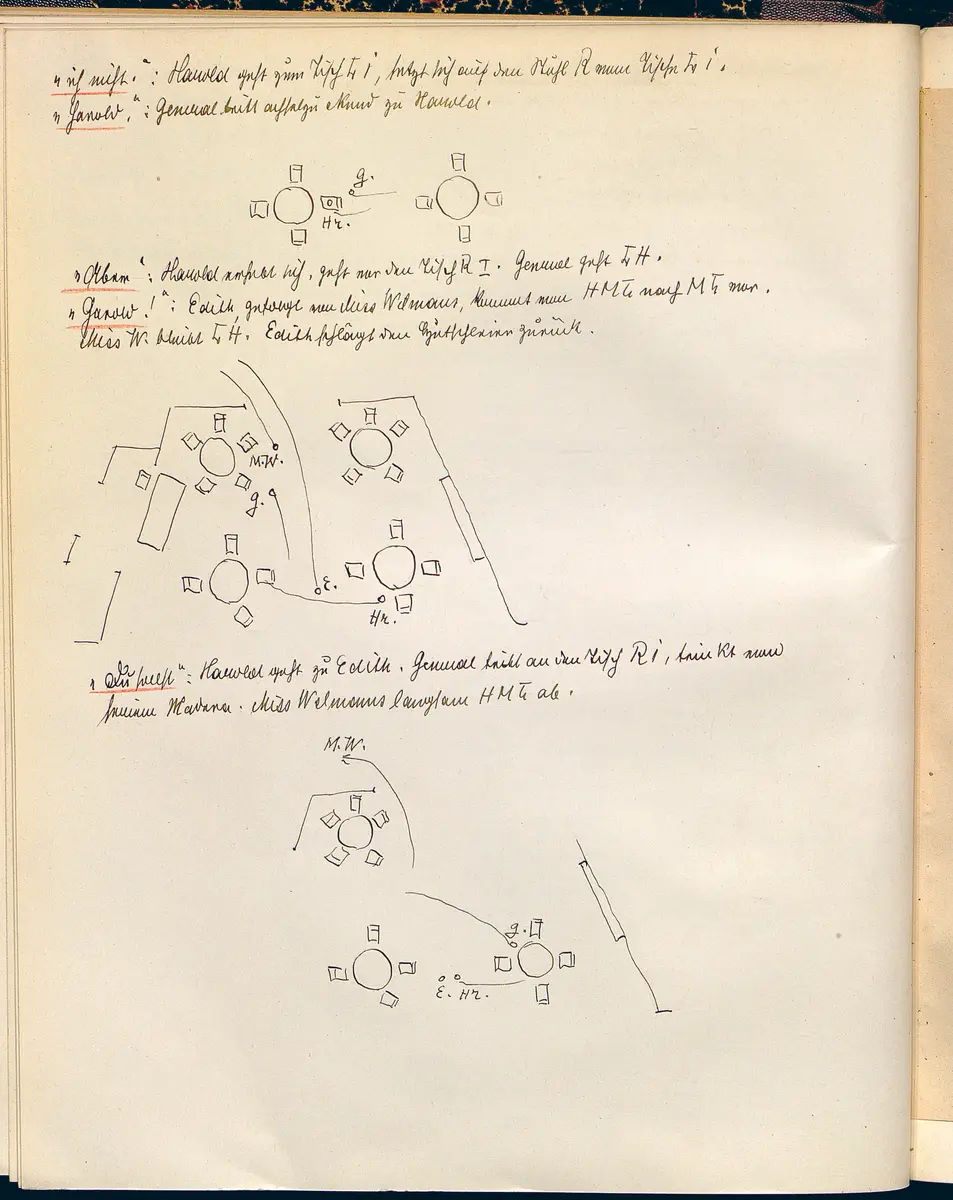 „ich nicht.“: Harold geht zum Tisch L I, setzt sich auf den Stuhl R vom Tische L I.
„Harold.“: General tritt achselzuckend zu Harold.
g.
Hr.
„Aber“: Harold erhebt sich, geht vor den Tisch R I. General geht L H.
„Harold!“: Edith, gefolgt von Miss Wilmans, kommt von H M L nach M L vor.
Miss W. bleibt L H. Edith schlägt den Hutschleier zurück.
M.W.
g.
E.
Hr.
„Du hilfst“: Harold geht zu Edith. General tritt an den Tisch R I, trinkt von
seinem Madera. Miss Wilmanns langsam H M L ab.
M.W.
g.
E. Hr.